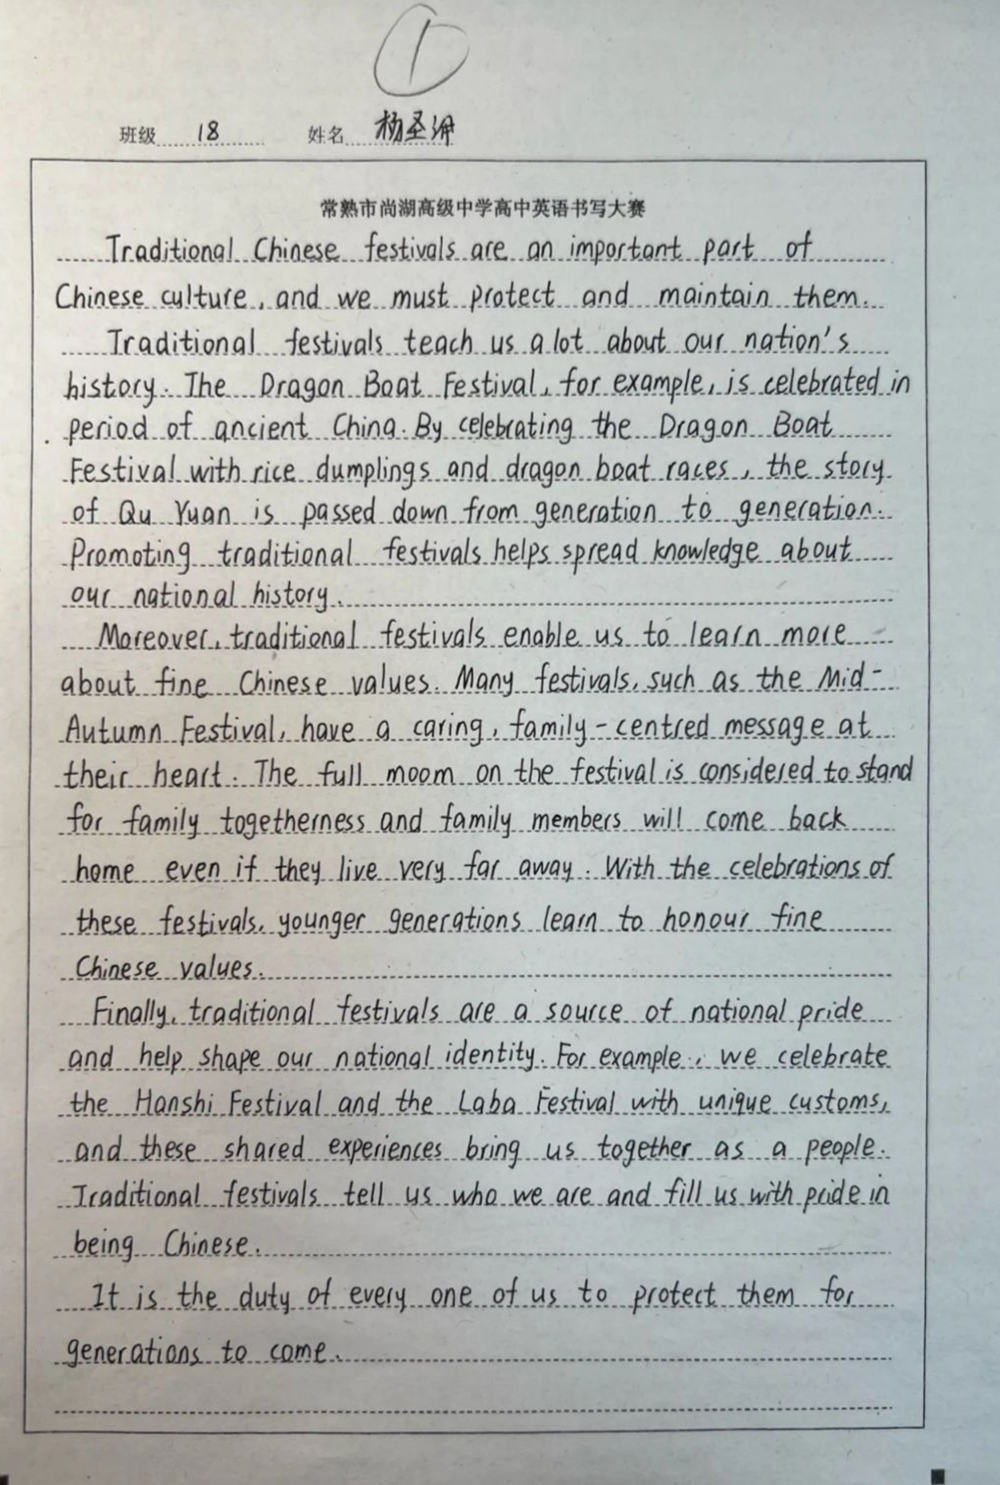 1
班级 18 姓名 杨圣
常熟市尚湖高级中学高中英语书写大赛
Traditional Chinese festivals are an important part of
Chinese culture, and we must protect and maintain them.
Traditional festivals teach us a lot about our nation's
history. The Dragon Boat Festival, for example, is celebrated in
period of ancient China. By celebrating the Dragon Boat
Festival with rice dumplings and dragon boat races, the story
of Qu Yuan is passed down from generation to generation.
Promoting traditional festivals helps spread knowledge about
our national history.
Moreover, traditional festivals enable us to learn more
about fine Chinese values. Many festivals, such as the Mid-
Autumn Festival, have a caring, family-centred message at
their heart. The full moom on the festival is considered to stand
for family togetherness and family members will come back
home even if they live very far away. With the celebrations of
these festivals, younger generations learn to honour fine
Chinese values.
Finally, traditional festivals are a source of national pride
and help shape our national identity. For example, we celebrate
the Hanshi Festival and the Laba Festival with unique customs,
and these shared experiences bring us together as a people.
Traditional festivals tell us who we are and fill us with pride in
being Chinese.
It is the duty of every one of us to protect them for
generations to come.